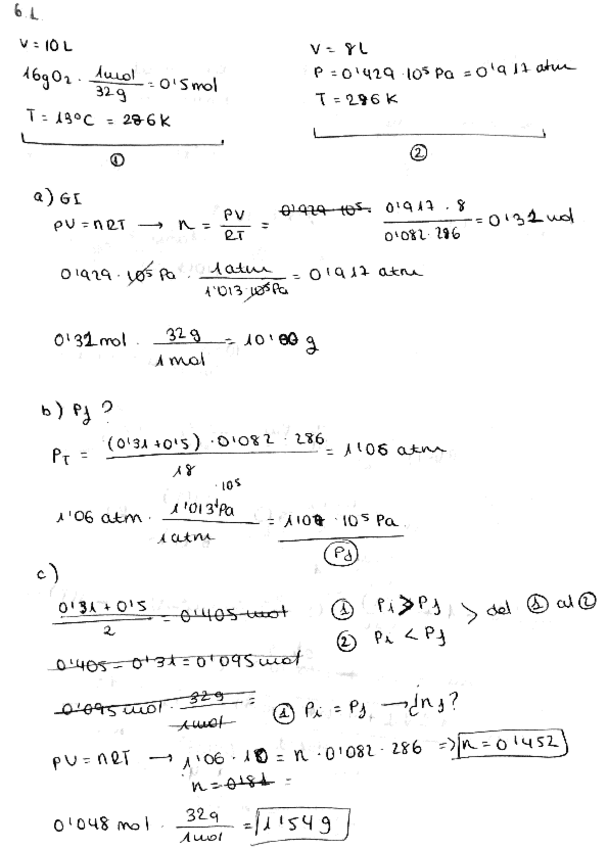 6.1.
V = 10 L
16g O2 · 1mol / 32g = 0'5 mol
T = 13ºC = 286 K
①
V = 8 L
P = 0'929 · 10⁵ Pa = 0'917 atm
T = 286 K
②
a) GI
PV = nRT → n = PV / RT = 0'929 · 10⁵ · 0'917 · 8 / 0'082 · 286 = 0'31 mol
0'929 · 10⁵ Pa · 1 atm / 1'013 · 10⁵ Pa = 0'917 atm
0'31 mol · 32 g / 1 mol = 10'00 g
b) Pf ?
PT = (0'31 + 0'5) · 0'082 · 286 / 18 = 1'06 atm
1'06 atm · 1'013 · 10⁵ Pa / 1 atm = 1'07 · 10⁵ Pa
Pf
c)
0'31 + 0'5 / 2 = 0'405 mol
① Pi > Pf
② Pi < Pf
> del ① al ②
0'405 - 0'31 = 0'095 mol
0'095 mol · 32g / 1mol =
① Pi = Pf → ¿nf?
PV = nRT → 1'06 · 10 = n · 0'082 · 286 => n = 0'452
n = 0'81 =
0'048 mol · 32g / 1mol = 1'54 g